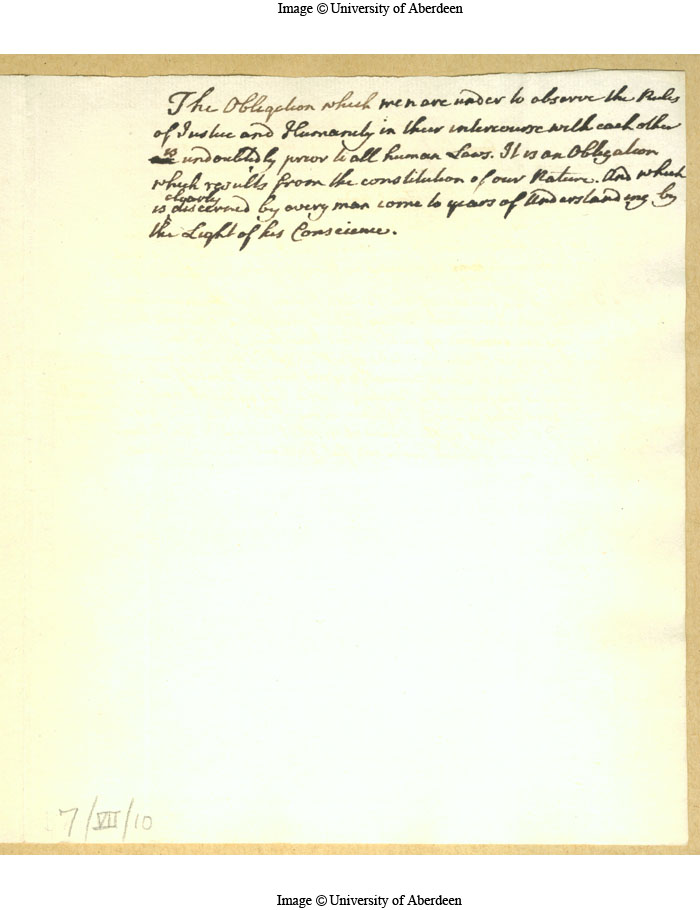 Image © University of Aberdeen
The Obligation which men are under to observe the Rules
of Justice and Humanity in their intercourse with each other
is
undoubtedly prior to all human Laws. It is an Obligation
which results from the constitution of our Nature. And which
clearly
is discerned by every man come to years of Understanding by
the Light of his Conscience.
7/VII/10
Image © University of Aberdeen